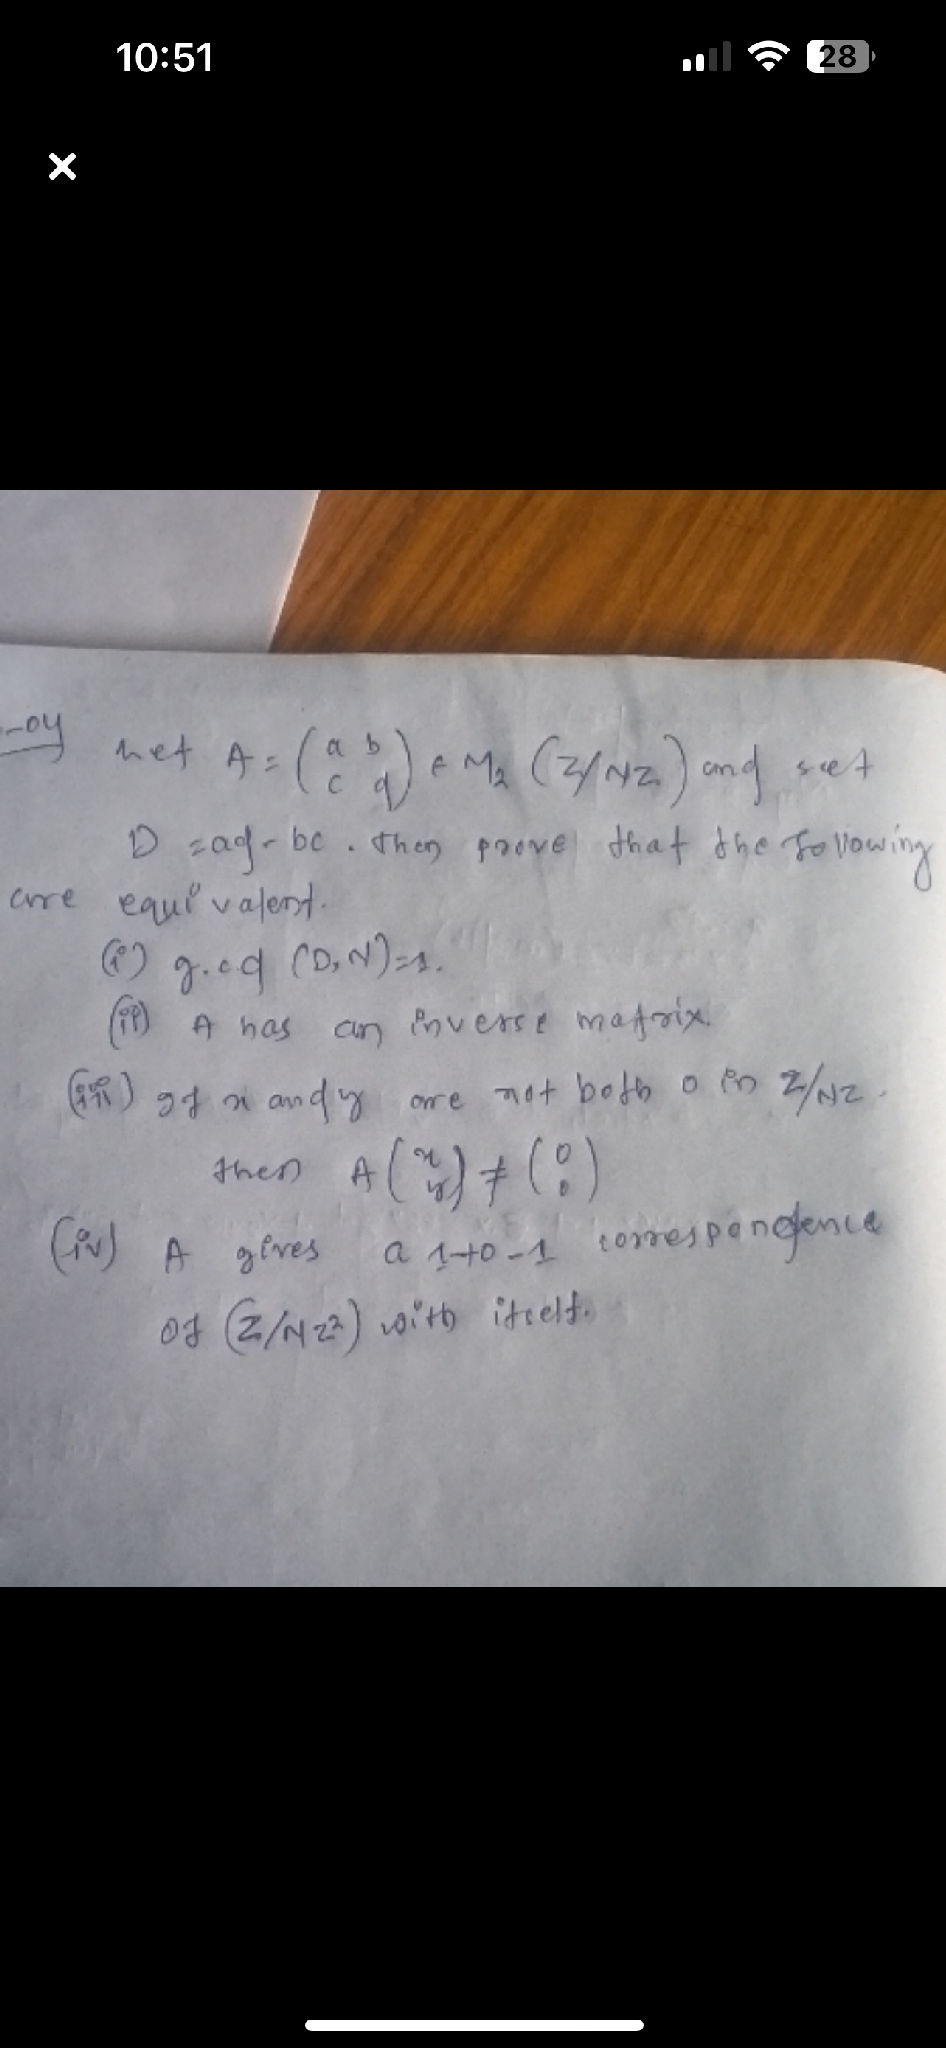 10:51
28
-04 Let A = (a b
c d) ∈ M₂ (Z/NZ) and set
D = ad - bc . Then prove that the following
are equivalent.
(i) g.c.d (D, N) = 1.
(ii) A has an inverse matrix.
(iii) If x and y are not both 0 in Z/NZ.
then A (x
y) ≠ (0
0)
(iv) A gives a 1-to-1 correspondence
of (Z/NZ²) with itself.